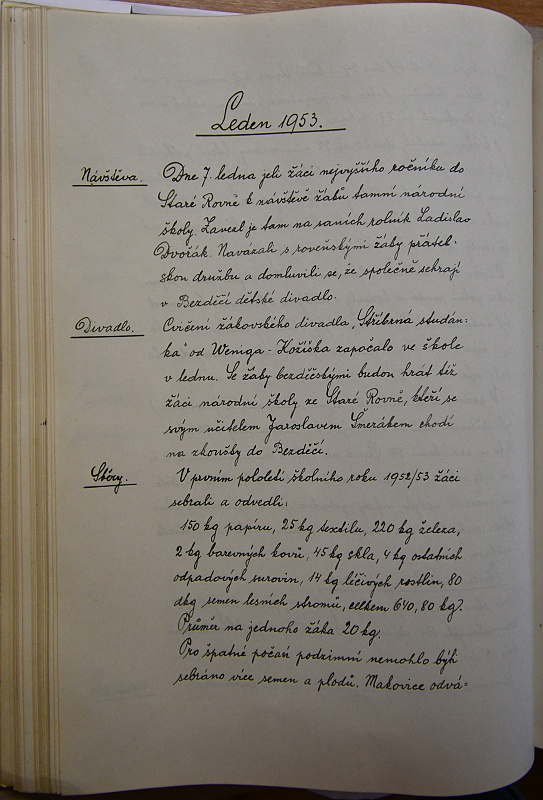 Leden 1953.
Návštěva. Dne 7. ledna jeli žáci nejvyššího ročníku do
Staré Rovně k návštěvě žáků tamní národní
školy. Zavezl je tam na saních rolník Ladislav
Dvořák. Navázali s roveňskými žáky přátel-
skou družbu a domluvili se, že společně sehrají
v Bezděčí dětské divadlo.
Divadlo. Cvičení žákovského divadla „Stříbrná studán-
ka" od Weniga - Kožíška započalo ve škole
v lednu. Se žáky bezděčskými budou hrát též
žáci národní školy ze Staré Rovně, kteří se
svým učitelem Jaroslavem Smerákem chodí
na zkoušky do Bezděčí.
Sběry. V prvním pololetí školního roku 1952/53 žáci
sebrali a odvedli:
150 kg papíru, 25 kg textilu, 220 kg železa,
2 kg barevných kovů, 45 kg skla, 4 kg ostatních
odpadových surovin, 14 kg léčivých rostlin, 80
dkg semen lesních stromů, celkem 640,80 kg.
Průměr na jednoho žáka 20 kg.
Pro špatné počasí podzimní nemohlo býti
sebráno více semen a plodů. Makovice odvá-